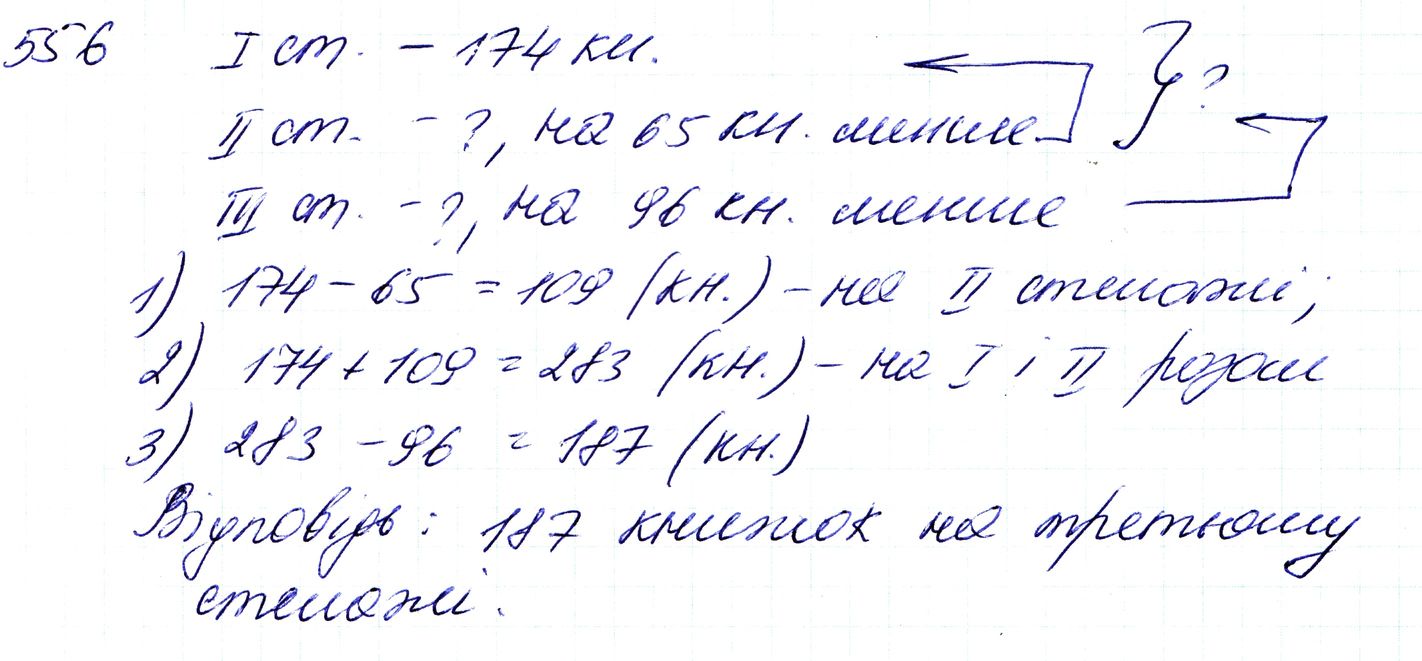 556 I ст. - 174 кн. } ?
II ст. - ?, на 65 кн. менше
III ст. - ?, на 96 кн. менше
1) 174 - 65 = 109 (кн.) - на II стелажі;
2) 174 + 109 = 283 (кн.) - на I і II разом
3) 283 - 96 = 187 (кн.)
Відповідь: 187 книжок на третьому
стелажі.